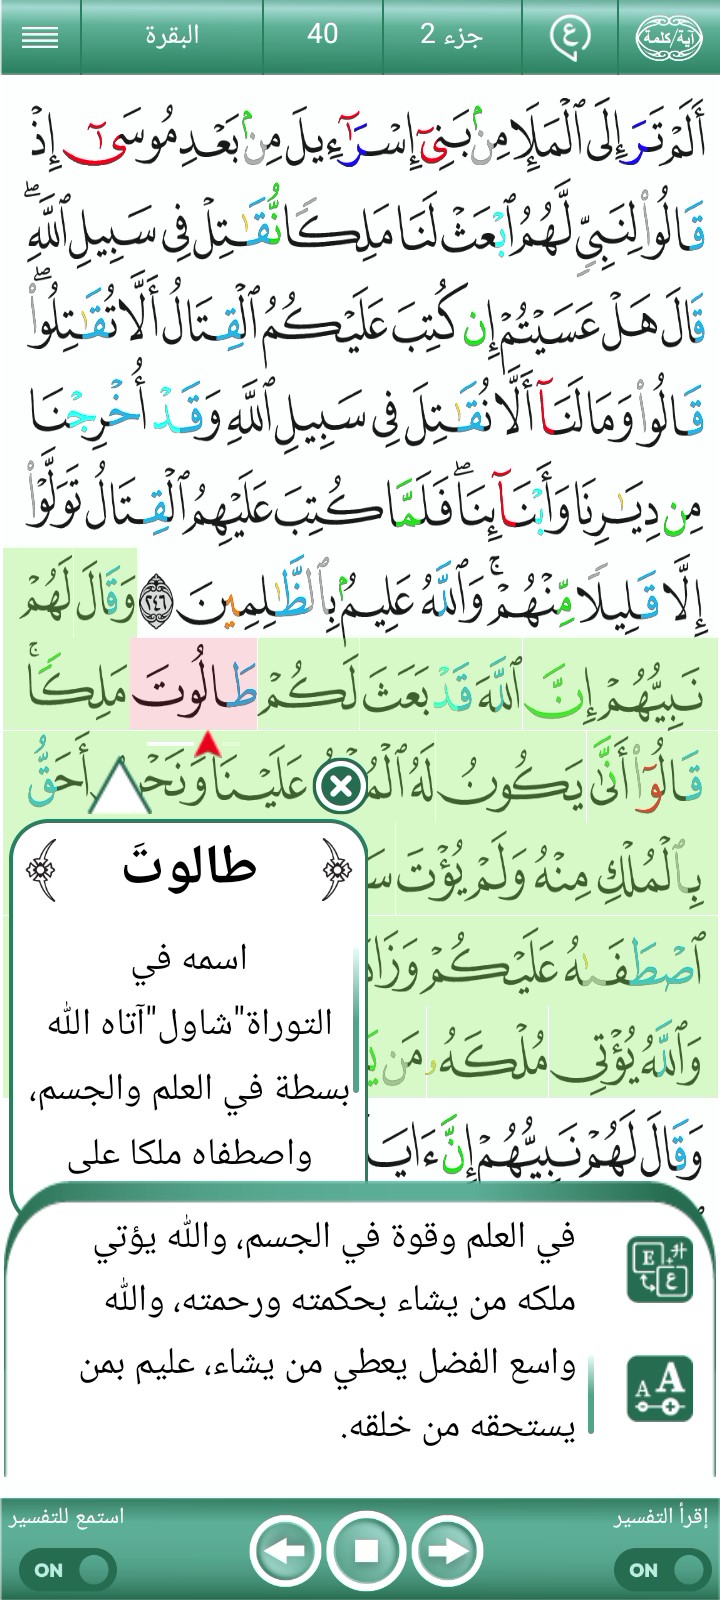 آية/كلمة
ع
جزء 2
40
البقرة
أَلَمْ تَرَ إِلَى ٱلْمَلَإِ مِنۢ بَنِىٓ إِسْرَٰٓءِيلَ مِنۢ بَعْدِ مُوسَىٰٓ إِذْ
قَالُوا۟ لِنَبِىٍّ لَّهُمُ ٱبْعَثْ لَنَا مَلِكًا نُّقَٰتِلْ فِى سَبِيلِ ٱللَّهِ ۖ
قَالَ هَلْ عَسَيْتُمْ إِن كُتِبَ عَلَيْكُمُ ٱلْقِتَالُ أَلَّا تُقَٰتِلُوا۟ ۖ
قَالُوا۟ وَمَا لَنَآ أَلَّا نُقَٰتِلَ فِى سَبِيلِ ٱللَّهِ وَقَدْ أُخْرِجْنَا
مِن دِيَٰرِنَا وَأَبْنَآئِنَا ۖ فَلَمَّا كُتِبَ عَلَيْهِمُ ٱلْقِتَالُ تَوَلَّوْا۟
إِلَّا قَلِيلًا مِّنْهُمْ ۗ وَٱللَّهُ عَلِيمٌۢ بِٱلظَّٰلِمِينَ ٢٤٦ وَقَالَ لَهُمْ
نَبِيُّهُمْ إِنَّ ٱللَّهَ قَدْ بَعَثَ لَكُمْ طَالُوتَ مَلِكًا ۚ
قَالُوٓا۟ أَنَّىٰ يَكُونُ لَهُ عَلَيْنَا وَنَحْنُ أَحَقُّ
بِٱلْمُلْكِ مِنْهُ وَلَمْ يُؤْتَ
ٱصْطَفَىٰهُ عَلَيْكُمْ
وَٱللَّهُ يُؤْتِى مُلْكَهُۥ مَن
وَقَالَ لَهُمْ نَبِيُّهُمْ إِنَّ
طالوتَ
اسمه في
التوراة"شاول"آتاه الله
بسطة في العلم والجسم،
واصطفاه ملكا على
في العلم وقوة في الجسم، والله يؤتي
ملكه من يشاء بحكمته ورحمته، والله
واسع الفضل يعطي من يشاء، عليم بمن
يستحقه من خلقه.
E
ع
A A
إقرأ التفسير
استمع للتفسير
ON
ON